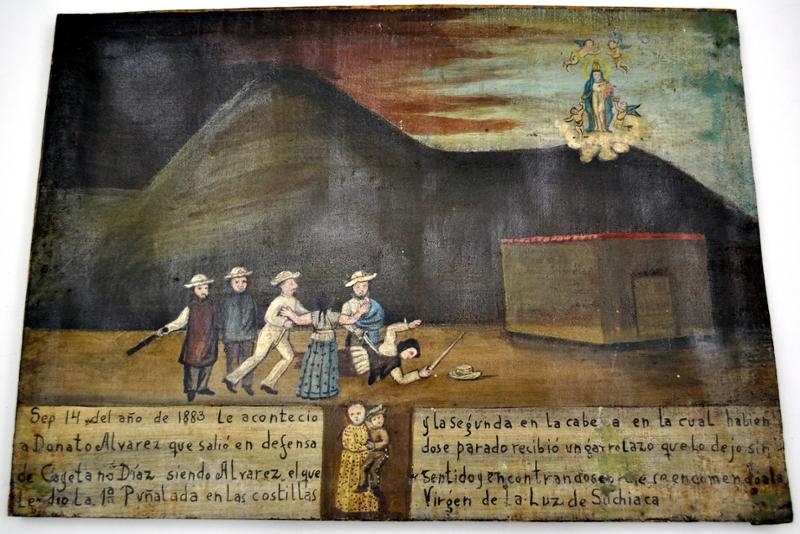 Sep 14 del año de 1883 Le acontecio
a Donato Alvarez que salió en defensa
de Cayetano Díaz siendo Alvarez el que
Le dio La 1ª Puñalada en las costillas
y la segunda en la cabe a en la cual habien
dose parado recibió un garrotazo que Lo dejo sin
Sentido y encontrandose se encomendo a la
Virgen de La Luz de Suchiaca